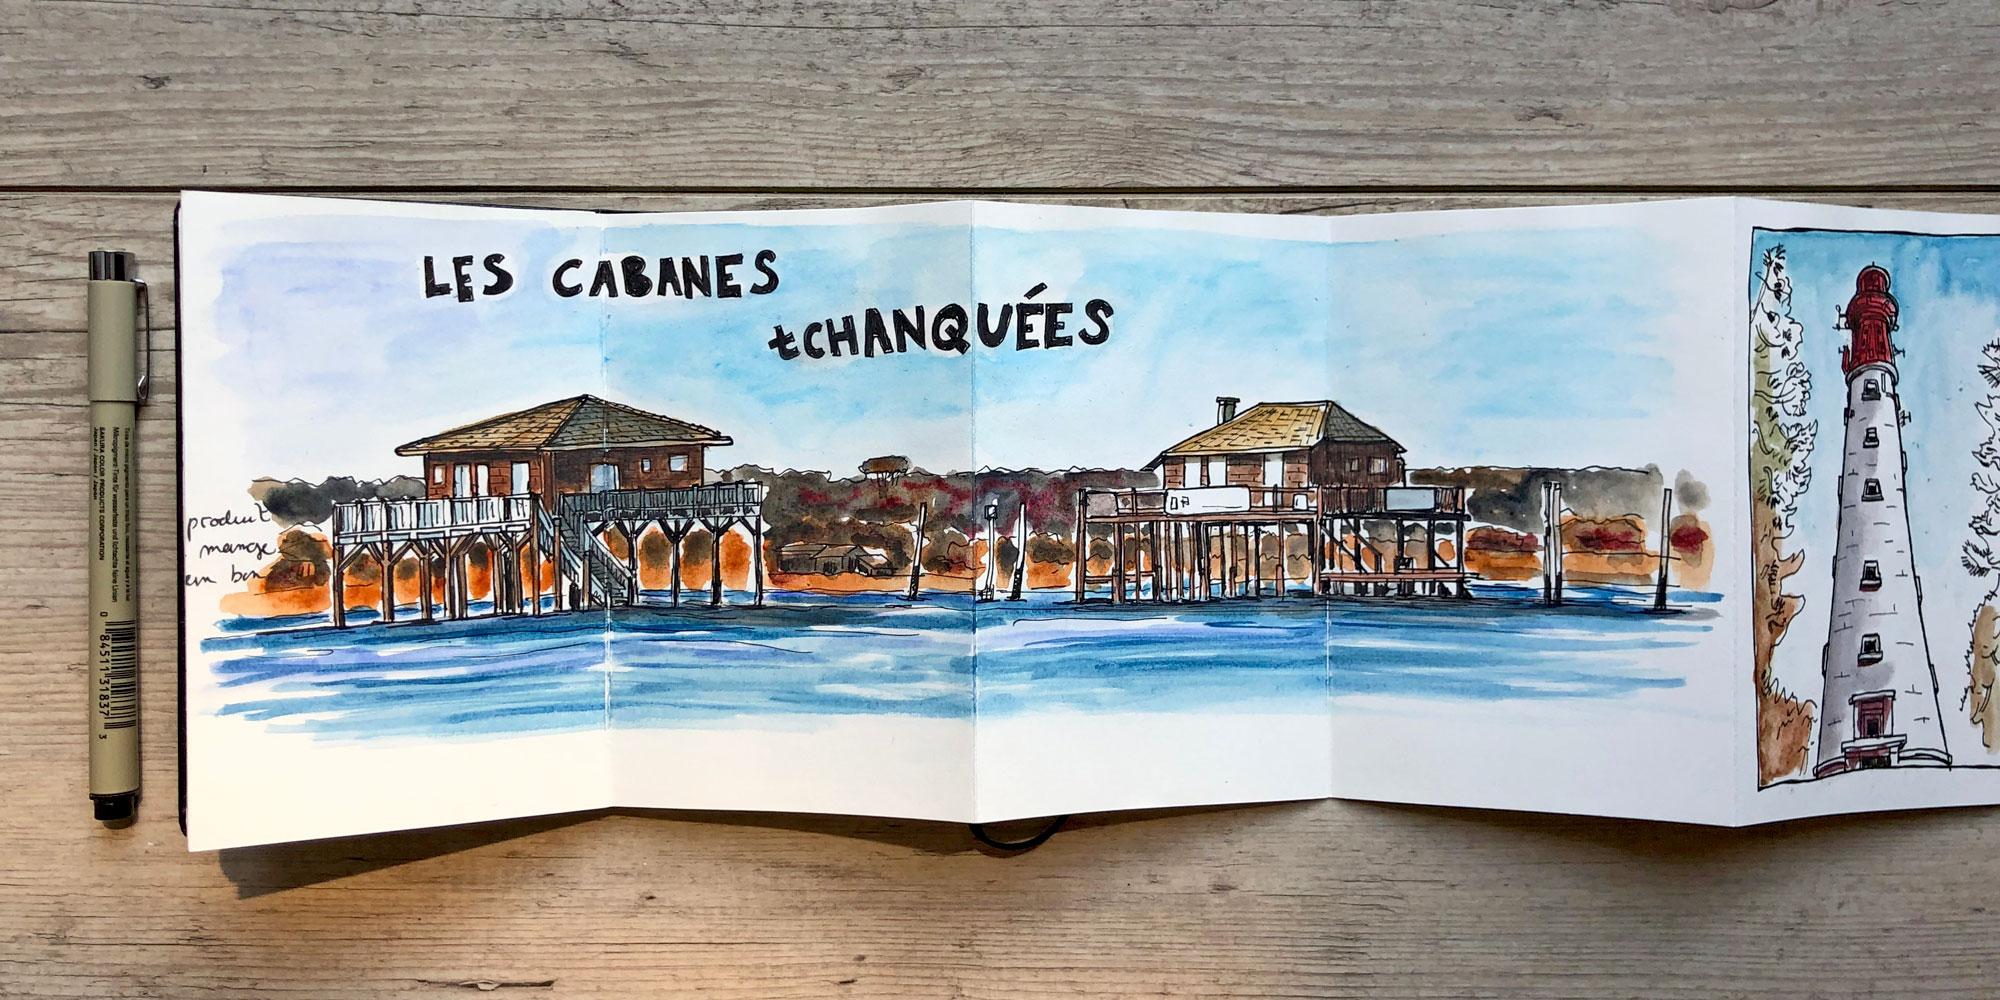 LES CABANES
tCHANQUÉES
produit
mange
en bon
SAKURA COLOR PRODUCTS CORPORATION
Japan / Japon
0 84511 31837 3